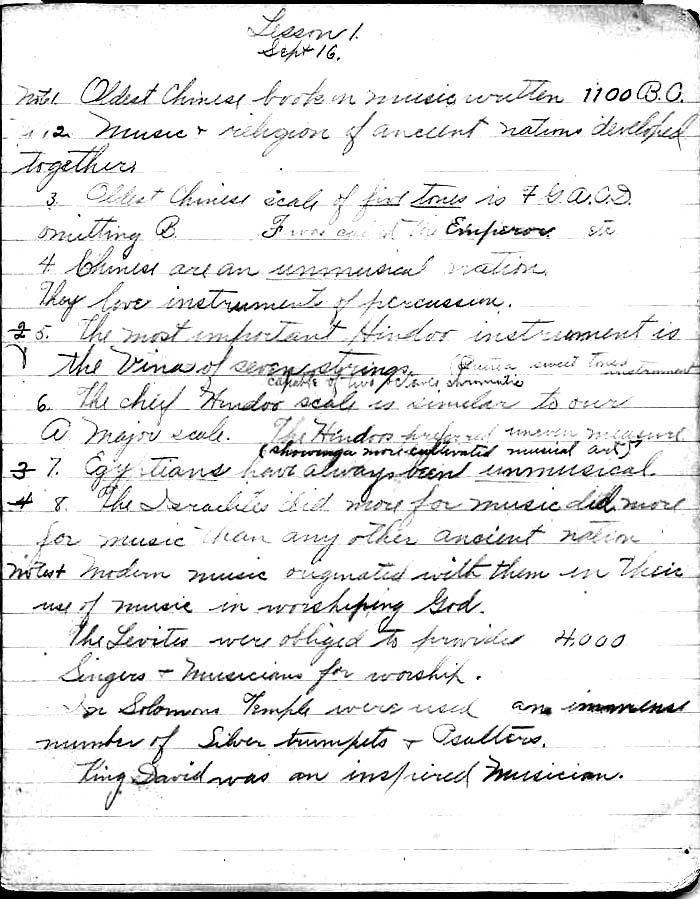 Lesson 1.
Sept 16.
Note 1. Oldest Chinese book on music written 1100 B.C.
2. Music & religion of ancient nations developed
together.
3. Oldest Chinese scale of five tones is F G. A. C. D.
omitting B. F was called the Emperor etc
4. Chinese are an unmusical nation.
They love instruments of percussion.
2 5. The most important Hindoo instrument is
the Vina of seven strings. sweet toned instrument
capable of two octaves chromatic
6. The chief Hindoo scale is similar to our
A Major scale. The Hindoos preferred uneven measure
(showing a more cultivated musical art)
3 7. Egyptians have always been unmusical.
4 8. The Israelites did more for music did more
for music than any other ancient nation
Notes + Modern music originated with them in their
use of music in worshiping God.
The Levites were obliged to provide 4,000
Singers + Musicians for worship.
In Solomons Temple were used an immense
number of Silver trumpets + Psalters.
King David was an inspired Musician.